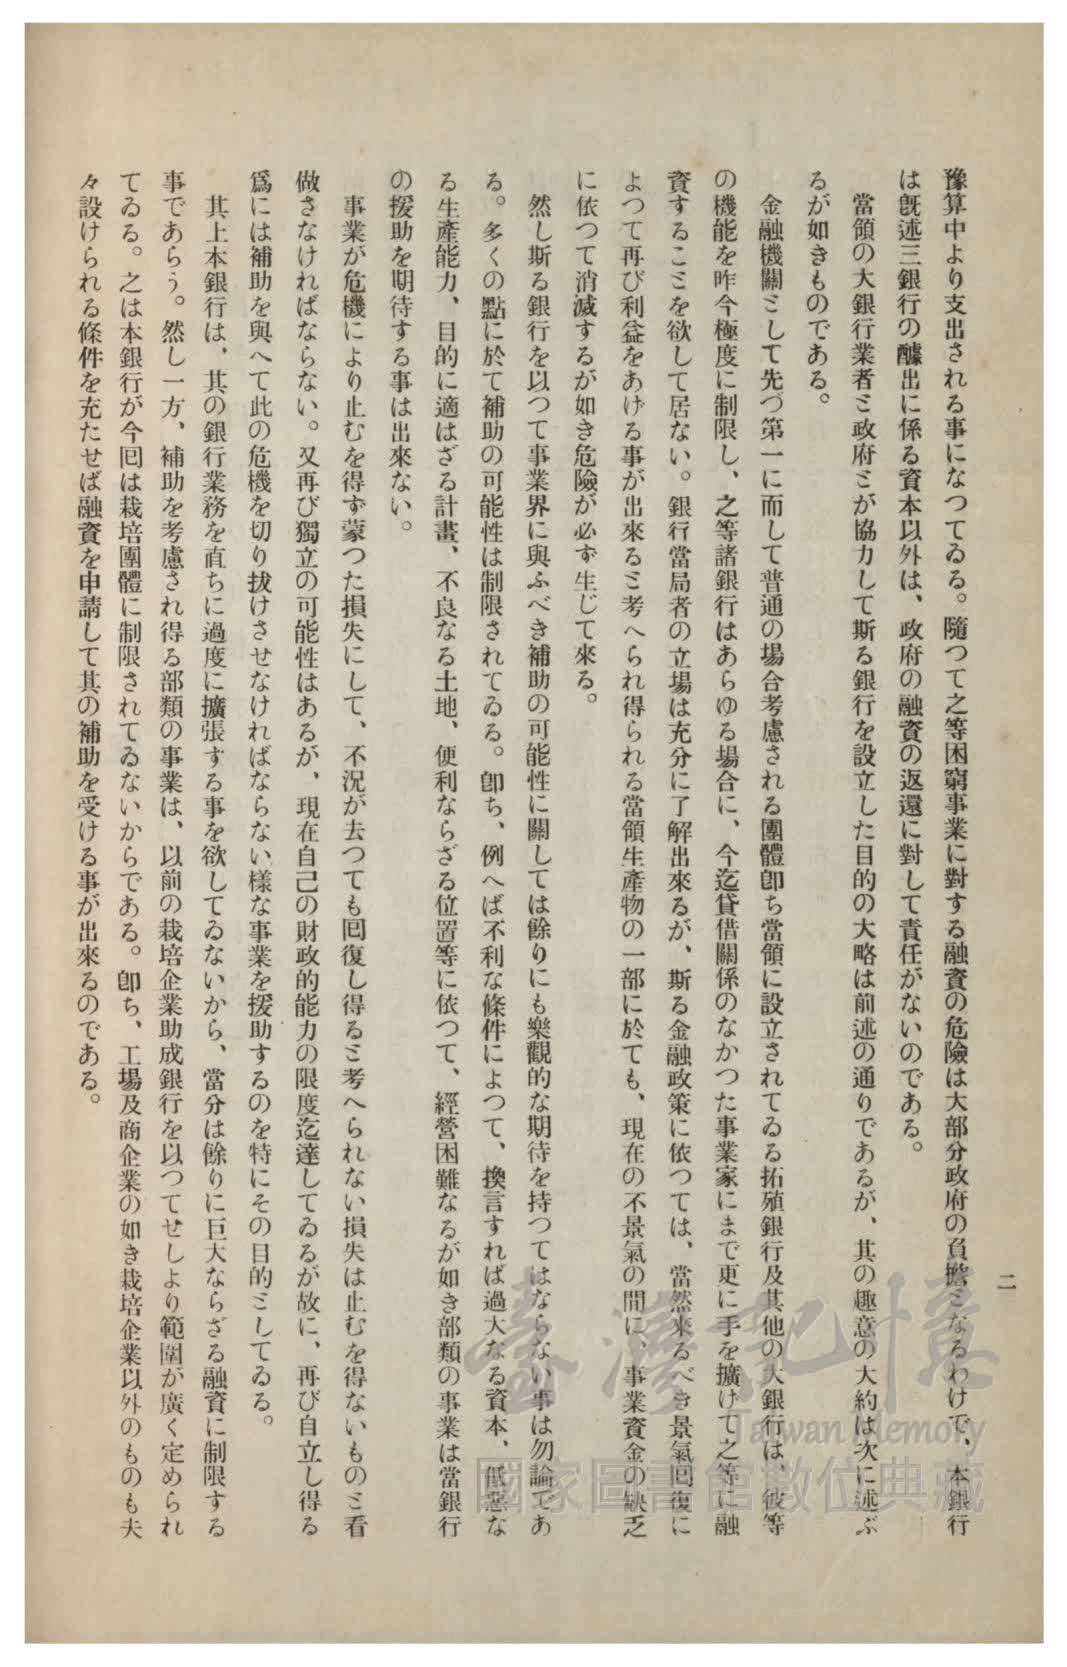 二
豫算中より支出される事になつてゐる。隨つて之等困窮事業に對する融資の危險は大部分政府の負擔となるわけで、本銀行
は既述三銀行の醵出に係る資本以外は、政府の融資の返還に對して責任がないのである。
當領の大銀行業者と政府とが協力して斯る銀行を設立した目的の大略は前述の通りであるが、其の趣意の大約は次に述ぶ
るが如きものである。
金融機關として先づ第一に而して普通の場合考慮される團體卽ち當領に設立されてゐる拓殖銀行及其他の大銀行は、彼等
の機能を昨今極度に制限し、之等諸銀行はあらゆる場合に、今迄貸借關係のなかつた事業家にまで更に手を擴げて之等に融
資することを欲して居ない。銀行當局者の立場は充分に了解出來るが、斯る金融政策に依つては、當然來るべき景氣回復に
よつて再び利益をあげる事が出來ると考へられ得られる當領生產物の一部に於ても、現在の不景氣の間に、事業資金の缺乏
に依つて消滅するが如き危險が必ず生じて來る。
然し斯る銀行を以つて事業界に與ふべき補助の可能性に關しては餘りにも樂觀的な期待を持つてはならない事は勿論であ
る。多くの點に於て補助の可能性は制限されてゐる。卽ち、例へば不利な條件によつて、換言すれば過大なる資本、低惡な
る生產能力、目的に適はざる計畫、不良なる土地、便利ならざる位置等に依つて、經營困難なるが如き部類の事業は當銀行
の援助を期待する事は出來ない。
事業が危機により止むを得ず蒙つた損失にして、不況が去つても回復し得ると考へられない損失は止むを得ないものと看
做さなければならない。又再び獨立の可能性はあるが、現在自己の財政的能力の限度迄達してゐるが故に、再び自立し得る
爲には補助を與へて此の危機を切り拔けさせなければならない樣な事業を援助するのを特にその目的としてゐる。
其上本銀行は、其の銀行業務を直ちに過度に擴張する事を欲してゐないから、當分は餘りに巨大ならざる融資に制限する
事であらう。然し一方、補助を考慮され得る部類の事業は、以前の栽培企業助成銀行を以つてせしより範圍が廣く定められ
てゐる。之は本銀行が今回は栽培團體に制限されてゐないからである。卽ち、工場及商企業の如き栽培企業以外のものも夫
々設けられる條件を充たせば融資を申請して其の補助を受ける事が出來るのである。
臺灣記憶
Taiwan Memory
國家圖書館數位典藏